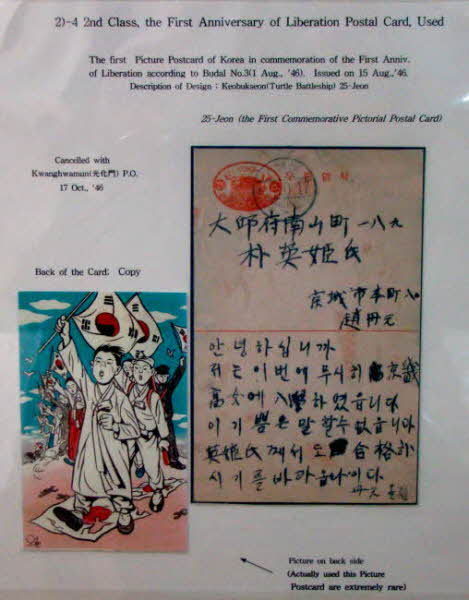 2)-4 2nd Class, the First Anniversary of Liberation Postal Card, Used
The first Picture Postcard of Korea in commemoration of the First Anniv.
of Liberation according to Budal No.3(1 Aug., '46). Issued on 15 Aug.,'46.
Description of Design : Keobukseon(Turtle Battleship) 25-Jeon
25-Jeon (the First Commemorative Pictorial Postal Card)
Cancelled with
Kwanghwamun(光化門) P.O.
17 Oct., '46
Back of the Card; Copy
大師府南山町一八九
朴英姬氏
京城市本町
趙丹元
안녕하십니까
저는 이번에 무사히 京畿
高女에 入學하였읍니다
이 기쁨은 말할수없읍니다
英姬氏께서도 合格하
시기를바라옵나이다
丹元
Picture on back side
(Actually used this Picture
Postcard are extremely rare)